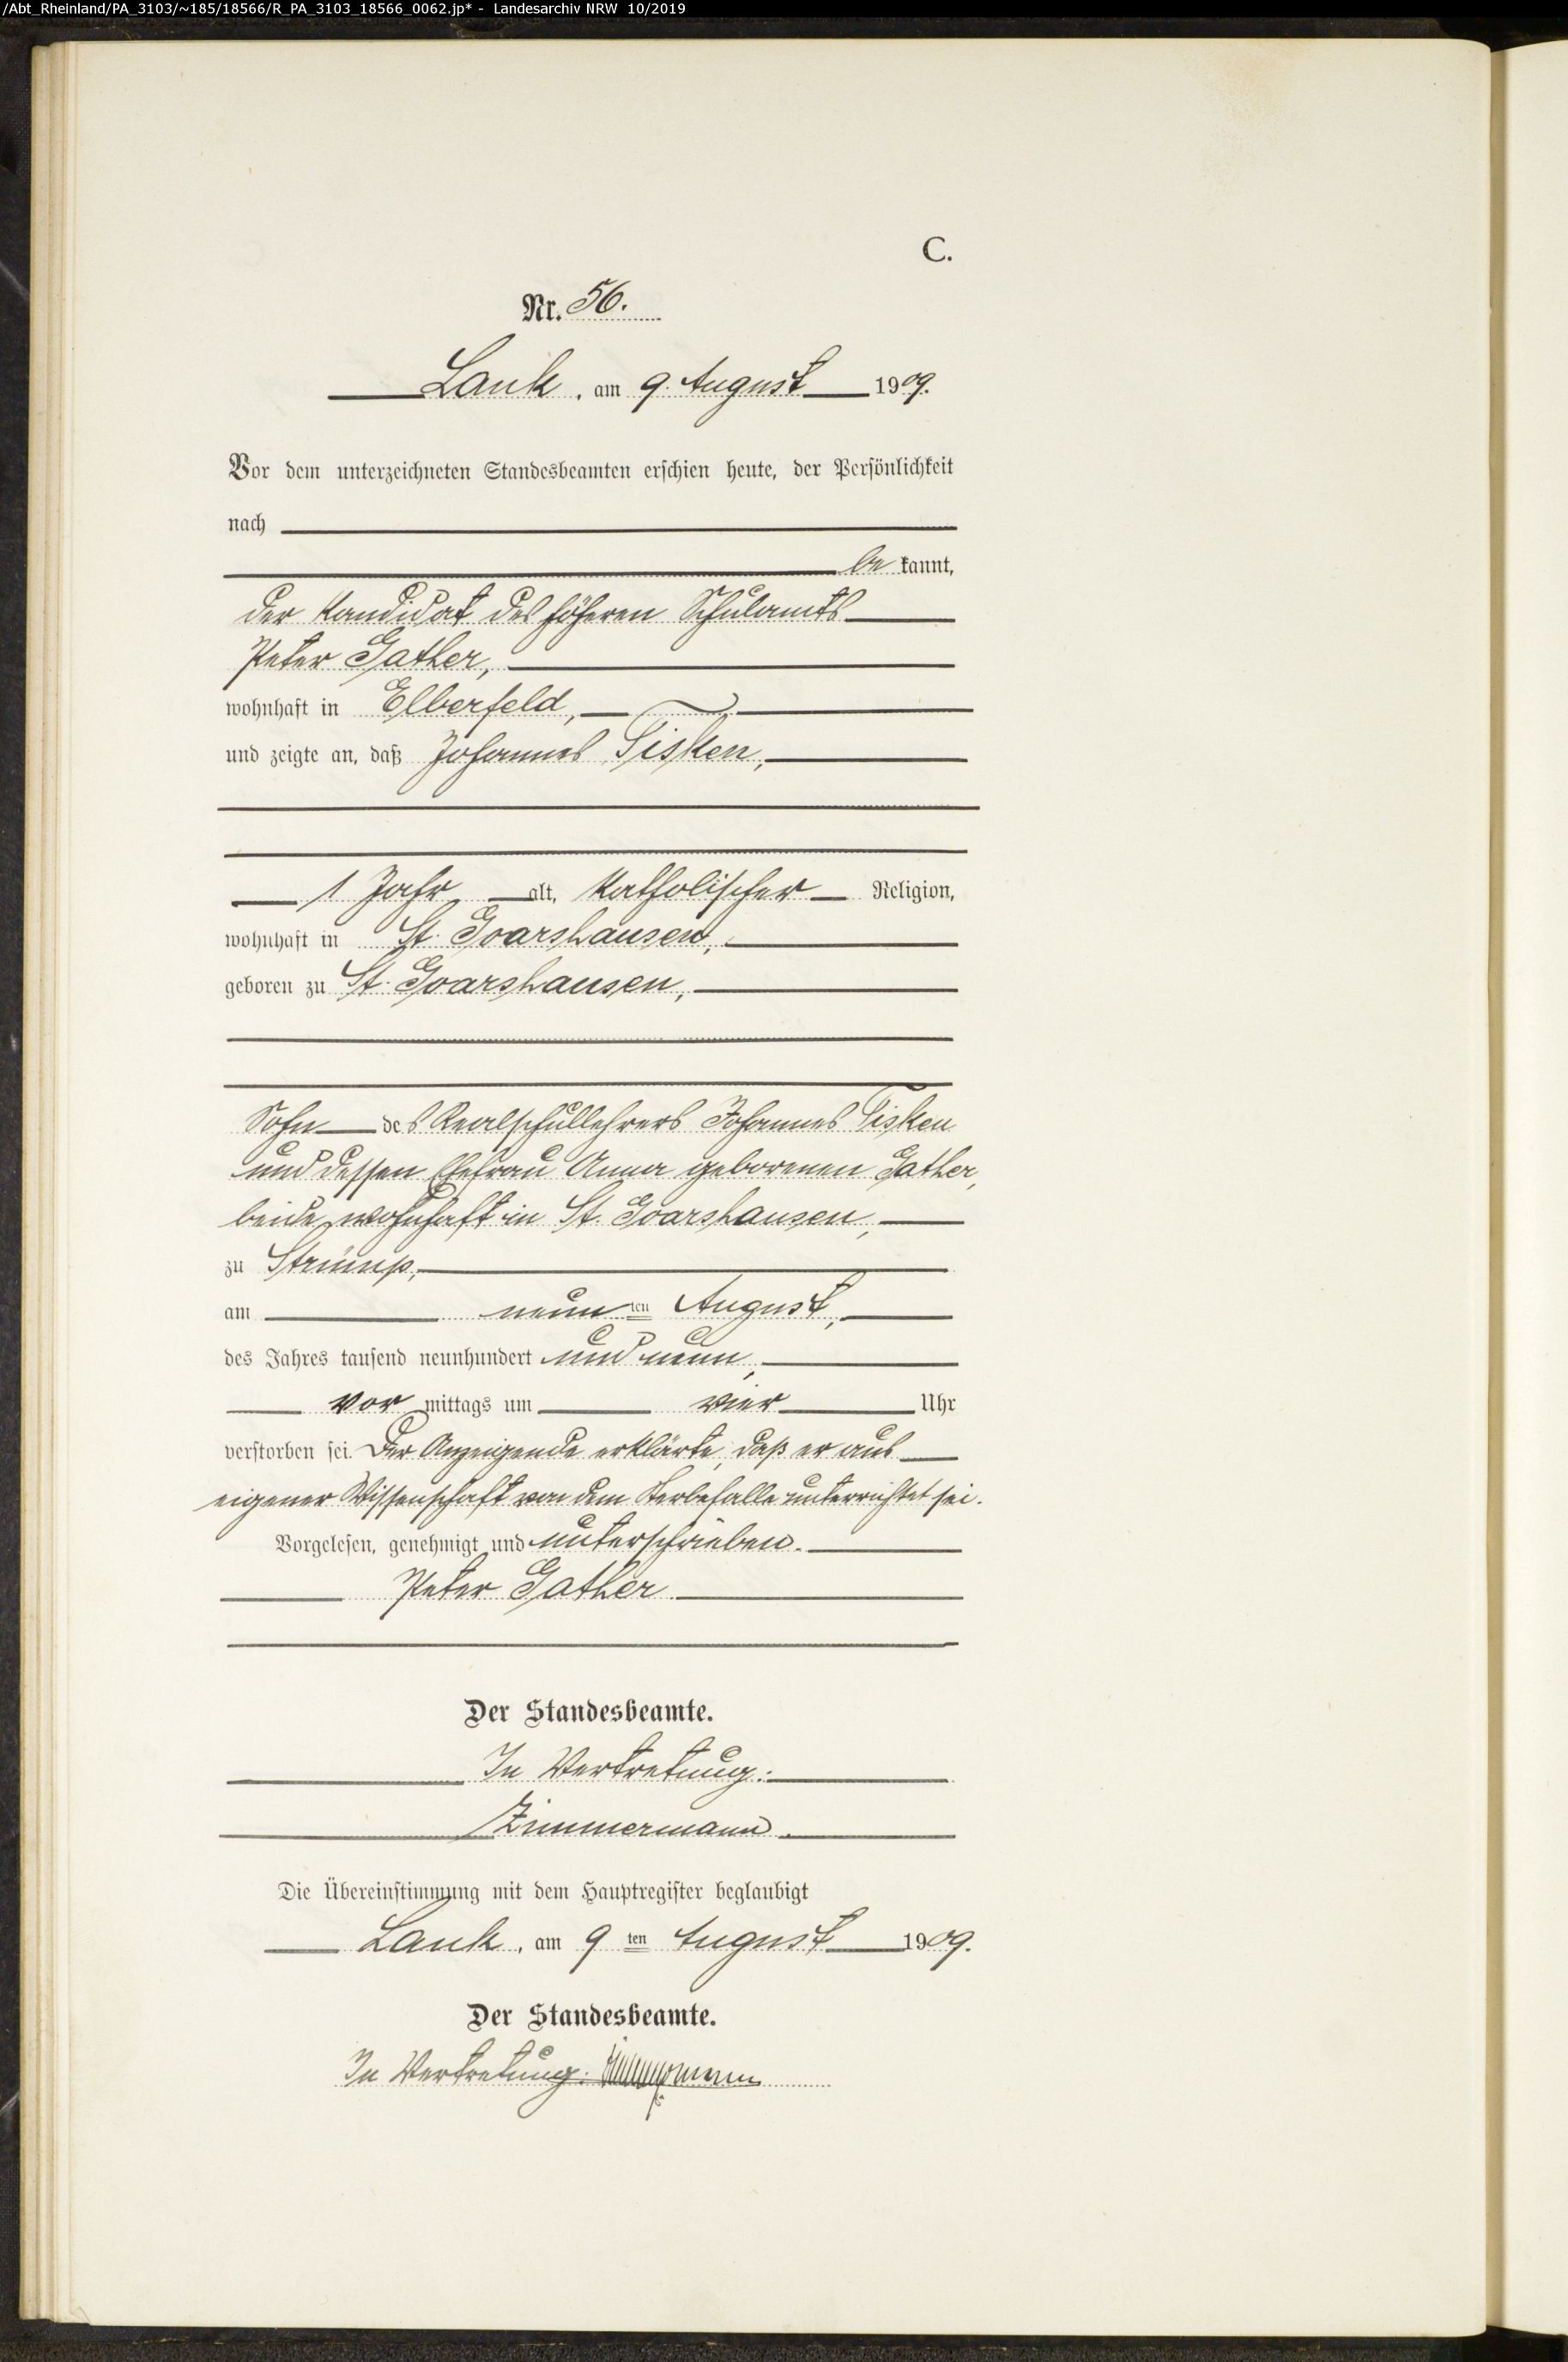 /Abt_Rheinland/PA_3103/~185/18566/R_PA_3103_18566_0062.jp* - Landesarchiv NRW 10/2019
C.
Nr. 56.
Lank, am 9. August 1909.
Vor dem unterzeichneten Standesbeamten erschien heute, der Persönlichkeit
nach
be kannt,
der Kandidat des höheren Schulamts
Peter Gather,
wohnhaft in Elberfeld,
und zeigte an, daß Johannes Tisken,
1 Jahr alt, katholischer Religion,
wohnhaft in St. Goarshausen,
geboren zu St. Goarshausen,
Sohn des Realschullehrers Johannes Tisken
und dessen Ehefrau Anna geborenen Gather,
beide wohnhaft in St. Goarshausen,
zu Strümp,
am neunten August,
des Jahres tausend neunhundert und neun,
vor mittags um vier Uhr
verstorben sei. Der Anzeigende erklärte, daß er aus
eigener Wissenschaft von dem Sterbefalle unterrichtet sei.
Vorgelesen, genehmigt und unterschrieben.
Peter Gather
Der Standesbeamte.
In Vertretung:
Zimmermann.
Die Übereinstimmung mit dem Hauptregister beglaubigt
Lank, am 9ten August 1909.
Der Standesbeamte.
In Vertretung: Zimmermann